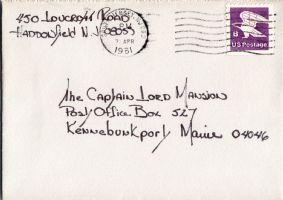 450 Loucroft Road
Haddonfield N.J. 08033
PM
APR
1981
B
US Postage
The Captain Lord Mansion
Post Office Box 527
Kennebunkport, Maine 04046